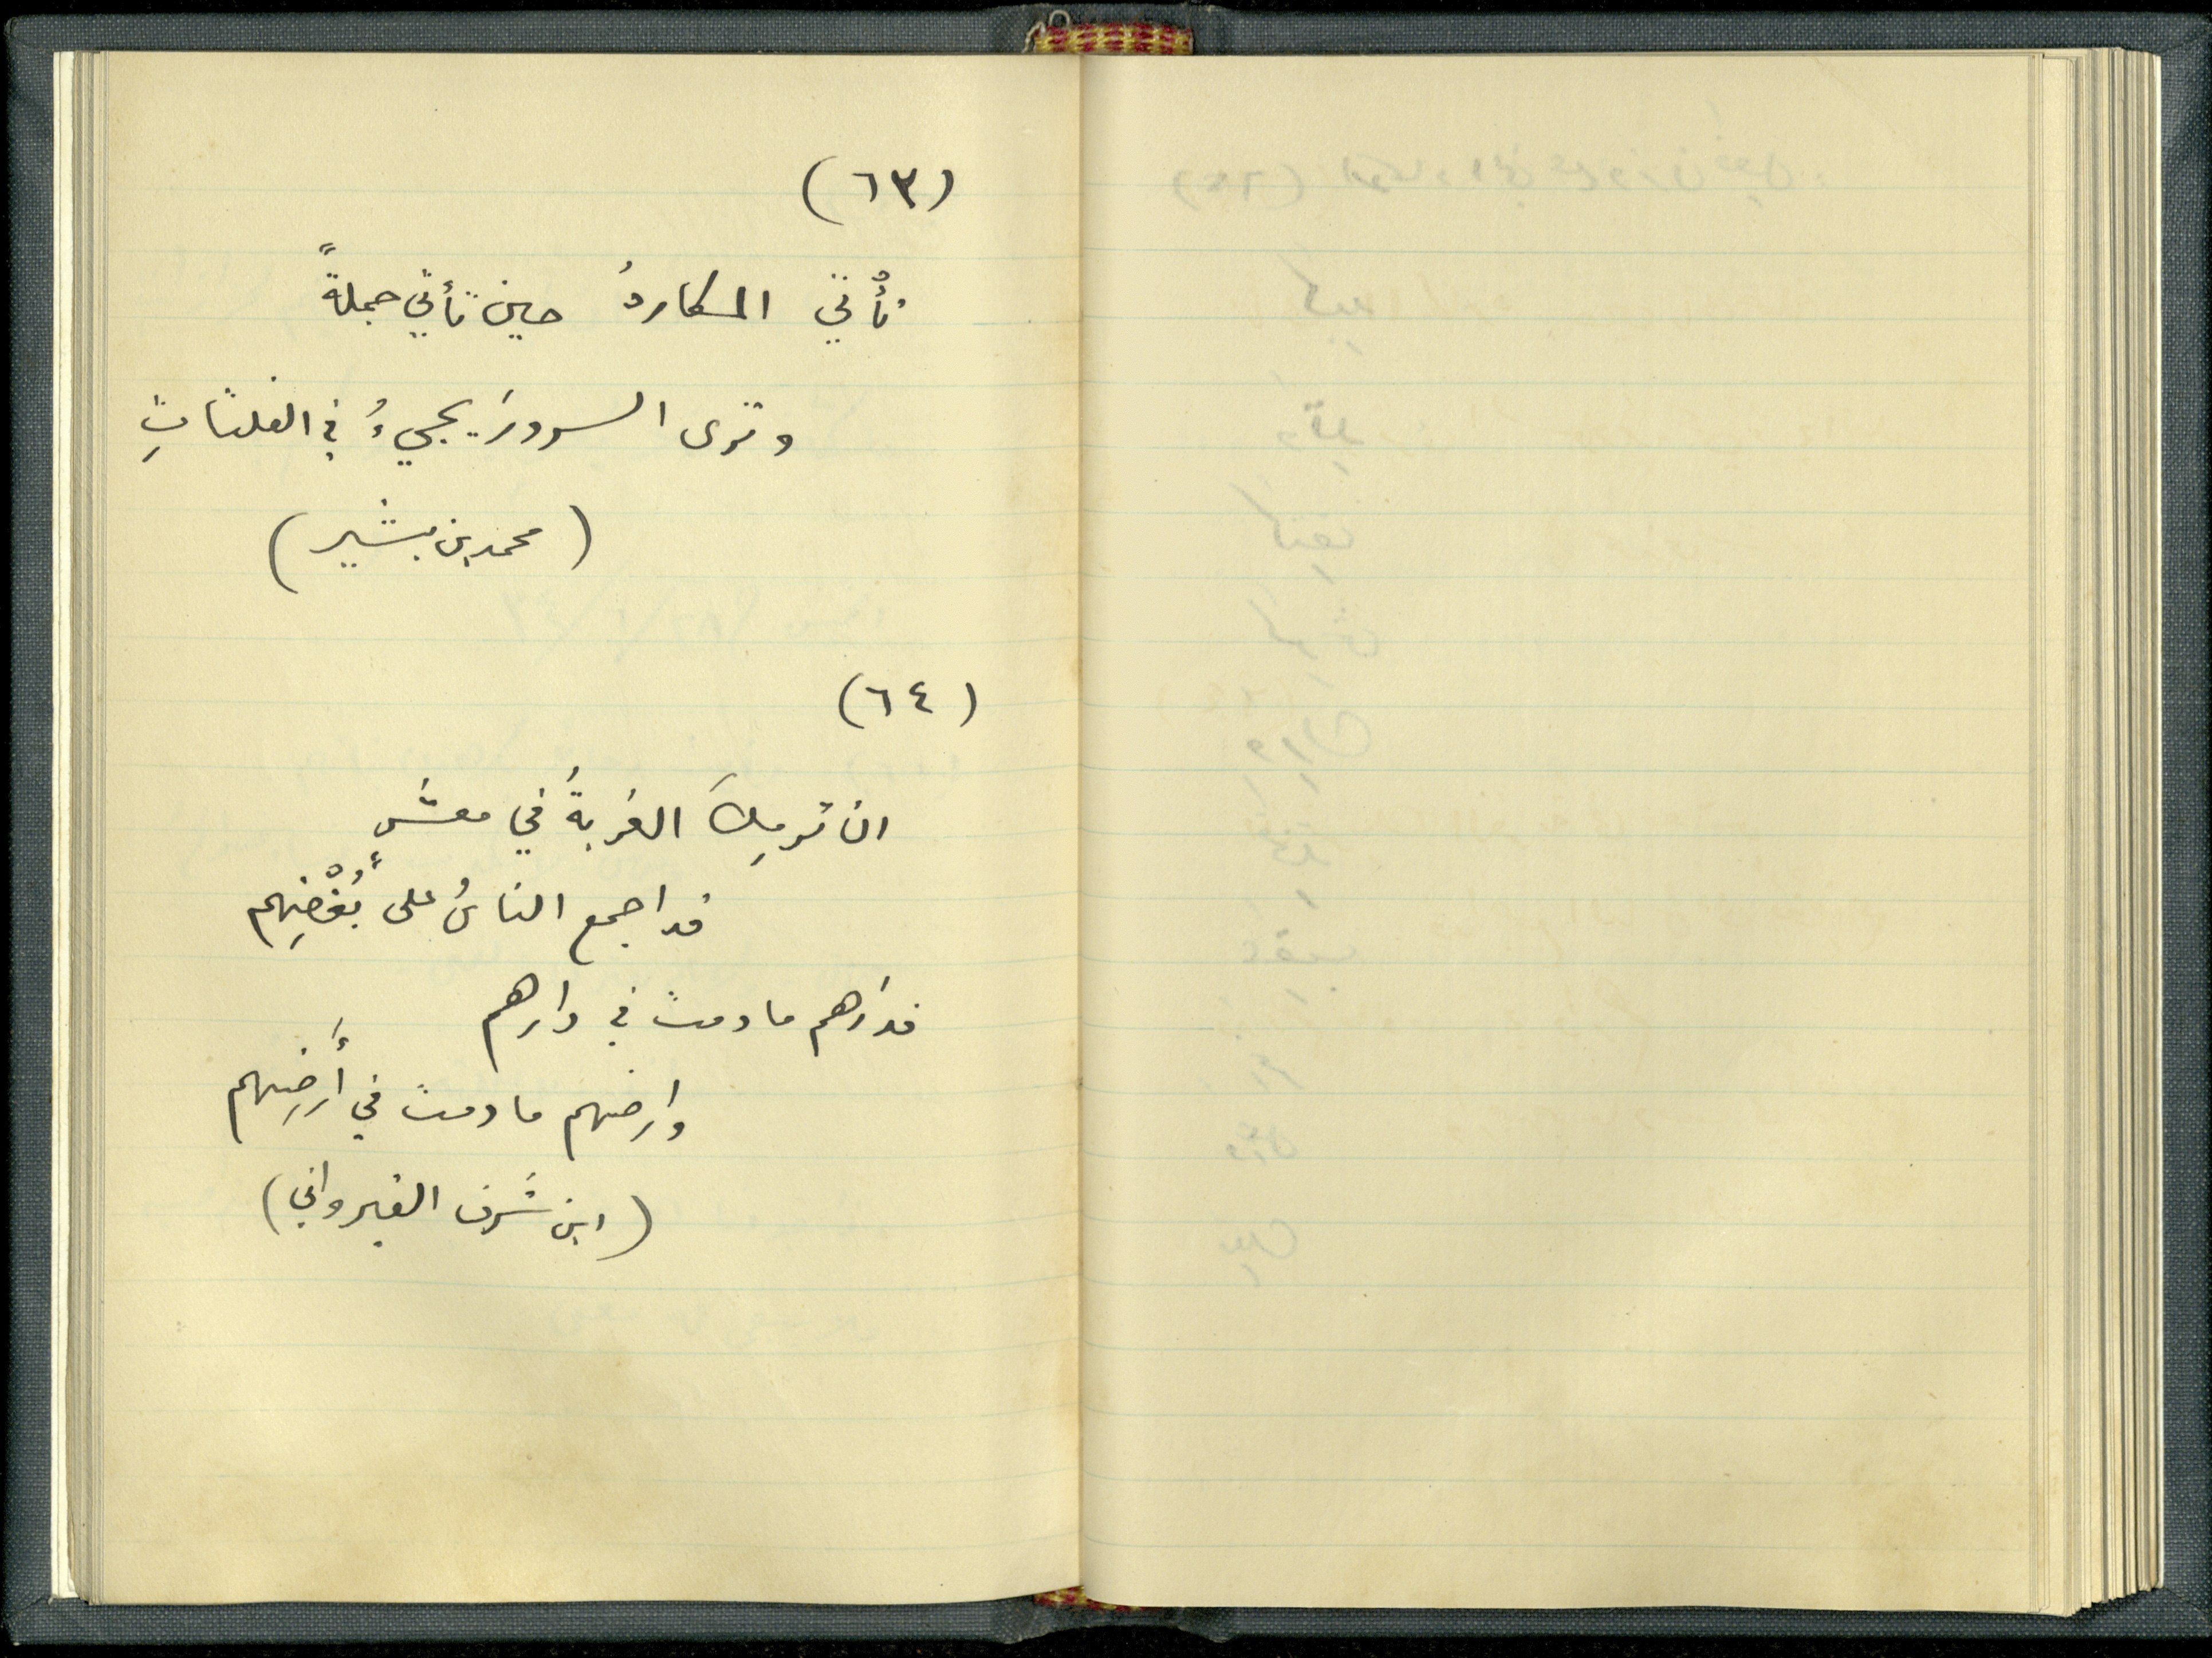 (٦٣)
تأْتي المكارهُ حين تأتي جملةً
وترى السرورَ يجيءُ في الفلتاتِ
(محمد بن بشير)
(٦٤)
ان ترمِكَ الغُربةُ في معشرٍ
قد اجمع الناسُ على بُغْضِهم
فدارَهم ما دمت في دارهم
وارضهم ما دمت في أَرضِهم
(ابن شَرف القيرواني)